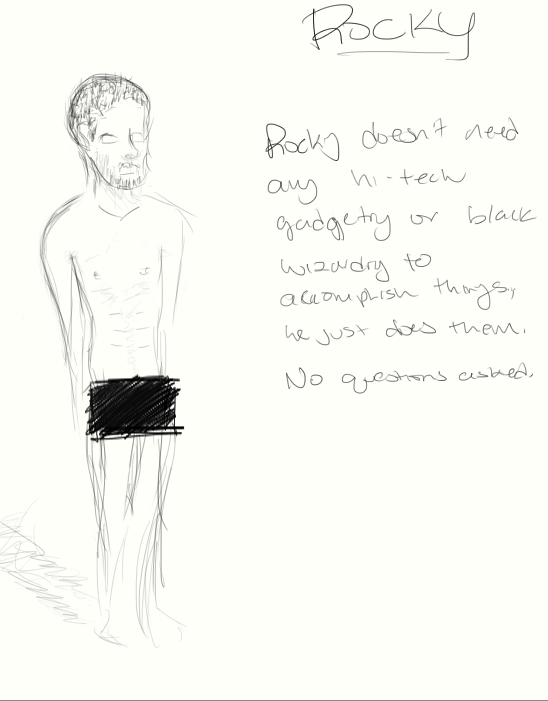 Rocky
Rocky doesn't need
any hi-tech
gadgetry or black
wizardry to
accomplish things,
he just does them.
No questions asked.